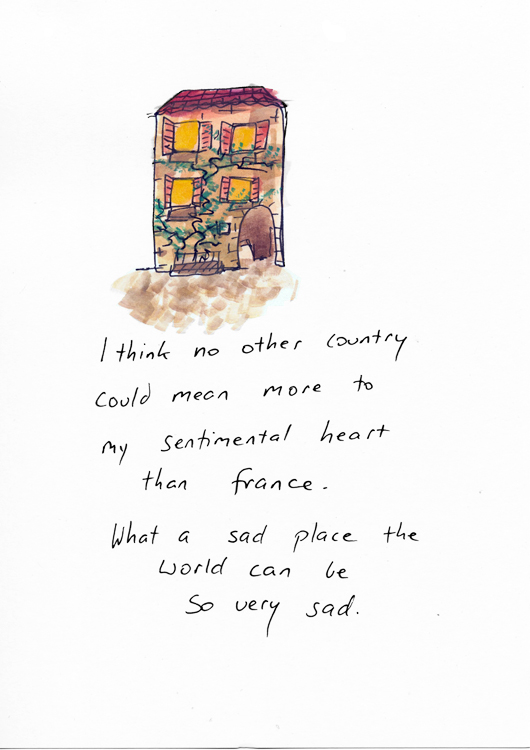 I think no other country
could mean more to
my sentimental heart
than france.
What a sad place the
world can be
So very sad.